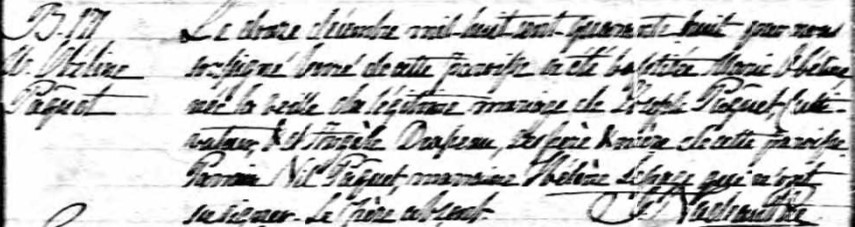 B. 171
M. Hélène
Pâquet
Le douze décembre mil-huit cent-quarante huit par nous
soussigné curé de cette paroisse a été baptisée Marie Hélène
née la veille du légitime mariage de Joseph Pâquet, culti-
vateur, & d'Angèle Drapeau, ses père & mère de cette paroisse
Parrain Nil Pâquet, marraine Hélène Lepage qui n'ont
su signer. Le père absent.